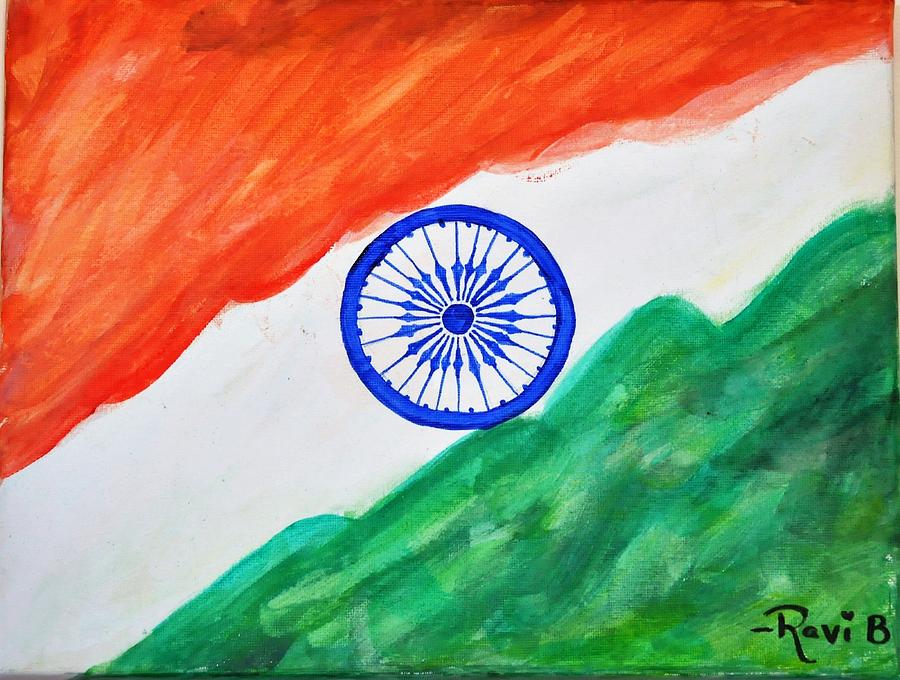 -Ravi B